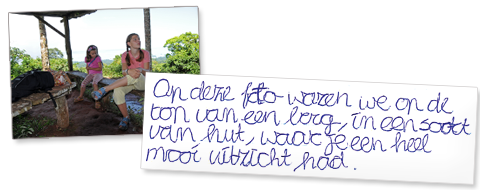 Op deze foto waren we op de
top van een berg, in een soort
van hut, waar je een heel
mooi uitzicht had.